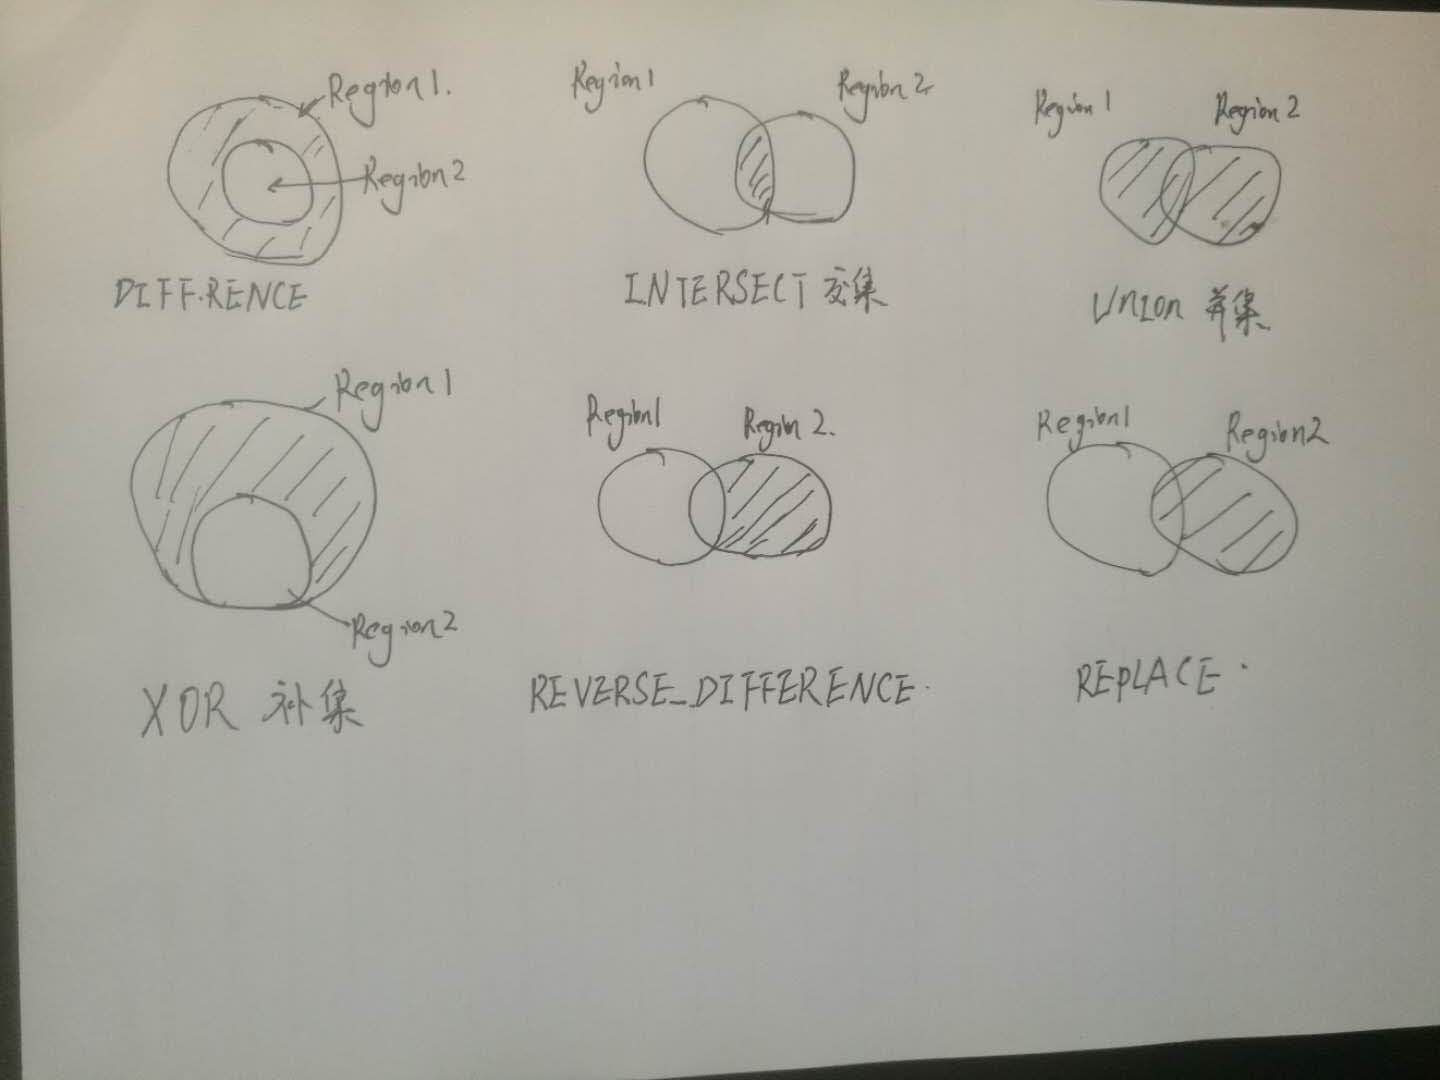 Region 1.
Region 2
DIFF.RENCE
Region 1
Region 2
INTERSECT 交集
Region 1
Region 2
Union 并集
Region 1
Region 2
XOR 补集
Region 1
Region 2.
REVERSE_DIFFERENCE.
Region 1
Region 2
REPLACE.